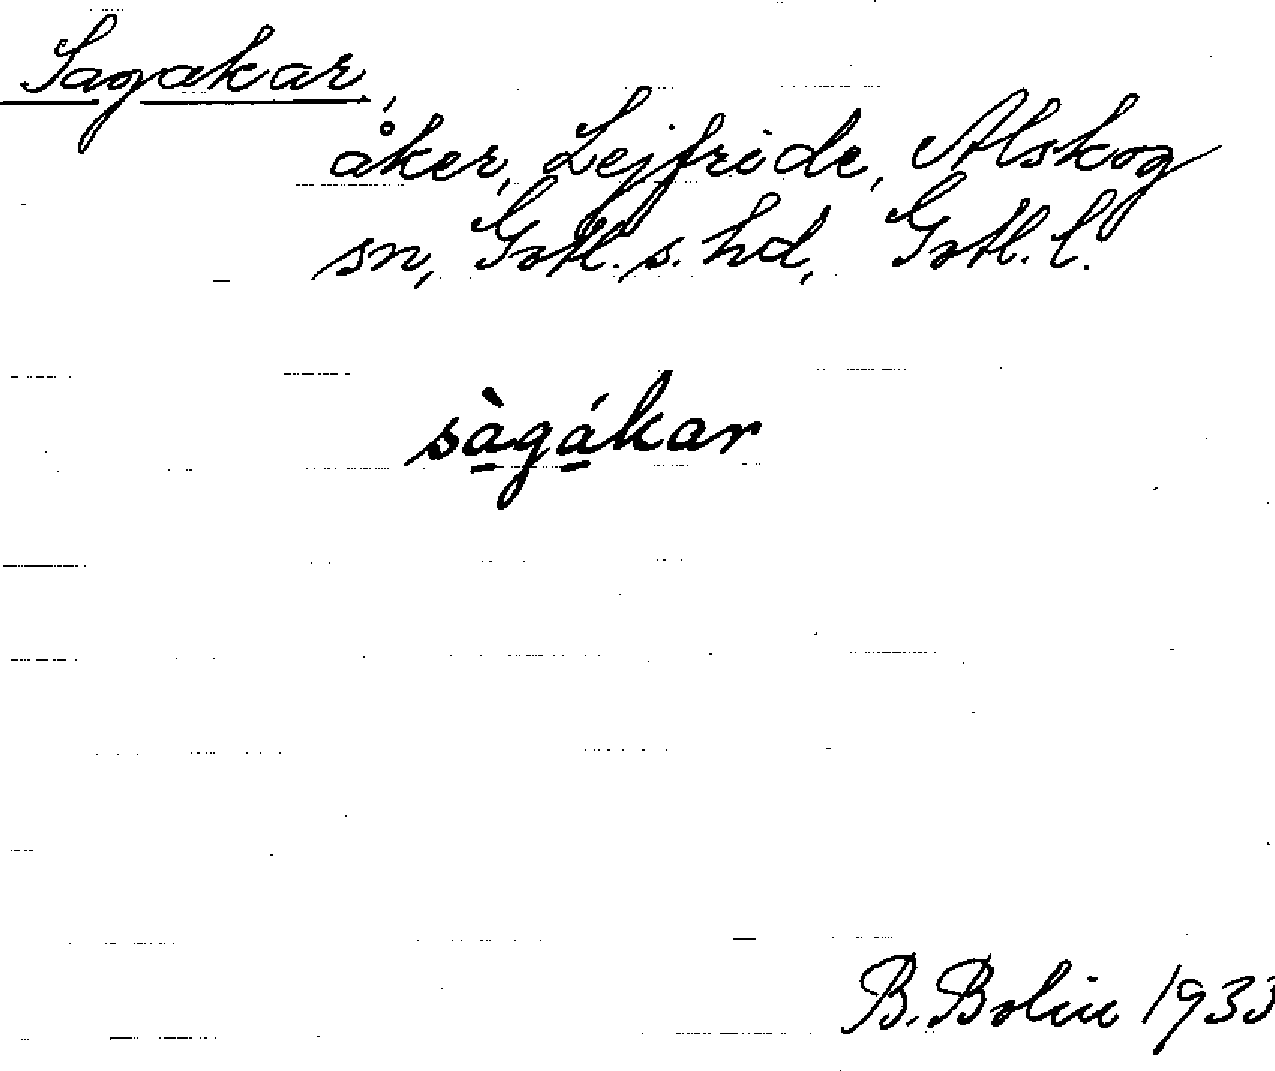 Sagakar,
åker, Lejfride, Alskog
sn, Gotl. s. hd, Gotl. l.
sà̱gá̱kar
B. Bolin 1933